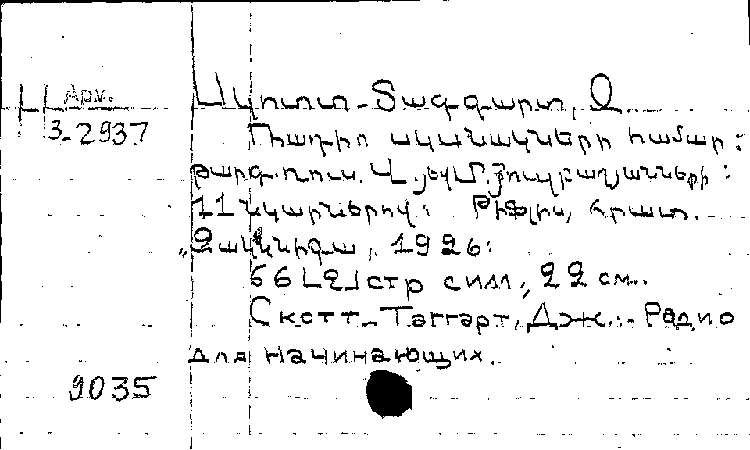 Арм.
3-2937
Սկոտտ-Տագգարտ, Ջ
Ռադիո սկսնակների համար:
թարգ. ռուս. Վ. յեվ Մ.
11 նկարներով: Թիֆլիս, հրատ.
„Զակկնիգա, 1926:
66 [2] стр с илл., 22 см.
Скотт-Таггарт, Дж.:- Радио
для начинающих.
9035